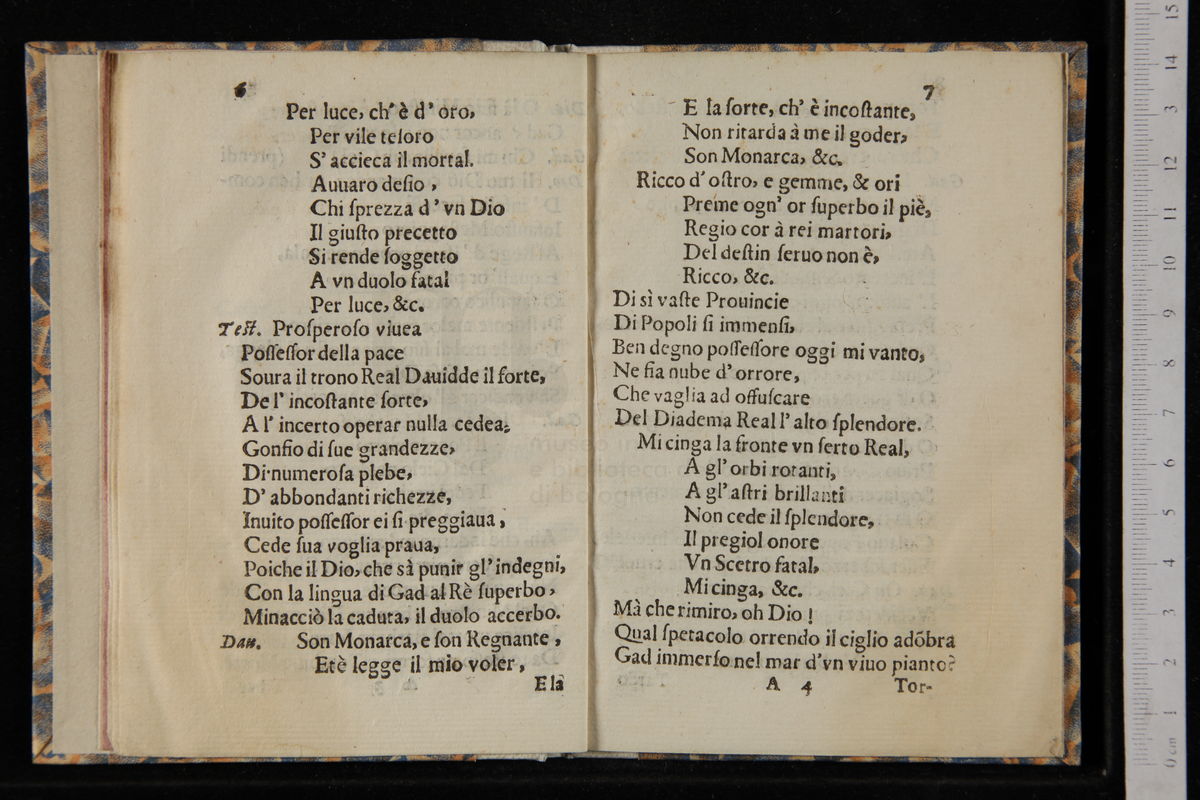 6
Per luce, ch' è d' oro,
Per vile teſoro
S' accieca il mortal.
Auuaro deſio ,
Chi ſprezza d' vn Dio
Il giuſto precetto
Si rende ſoggetto
A vn duolo fatal
Per luce, &c.
Teſt. Proſperoſo viuea
Poſſeſſor della pace
Soura il trono Real Dauidde il forte,
De l' incoſtante ſorte,
A l' incerto operar nulla cedea;
Gonfio di ſue grandezze,
Di numeroſa plebe,
D' abbondanti richezze,
Inuito poſſeſſor ei ſi preggiaua ,
Cede ſua voglia praua,
Poiche il Dio, che sà punir gl' indegni,
Con la lingua di Gad al Rè ſuperbo ,
Minacciò la caduta, il duolo accerbo.
Dau. Son Monarca, e ſon Regnante ,
Et è legge il mio voler ,
E la
7
E la ſorte, ch' è incoſtante,
Non ritarda à me il goder,
Son Monarca, &c.
Ricco d' oſtro, e gemme, & ori
Preme ogn' or ſuperbo il piè,
Regio cor à rei martori,
Del deſtin ſeruo non è,
Ricco, &c.
Di sì vaſte Prouincie
Di Popoli ſi immenſi,
Ben degno poſſeſſore oggi mi vanto,
Ne fia nube d' orrore,
Che vaglia ad offuſcare
Del Diadema Real l' alto ſplendore.
Mi cinga la fronte vn ſerto Real,
A gl' orbi rotanti,
A gl' aſtri brillanti
Non cede il ſplendore,
Il pregiol onore
Vn Scetro fatal,
Mi cinga, &c.
Mà che rimiro, oh Dio !
Qual ſpetacolo orrendo il ciglio adõbra
Gad immerſo nel mar d'vn viuo pianto?
A 4
Tor-